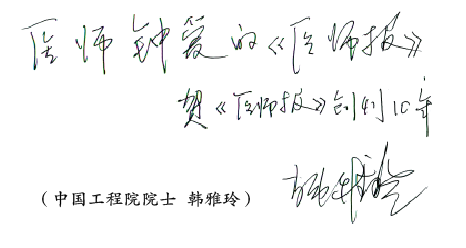 医师钟爱的《医师报》
贺《医师报》创刊10年
韩雅玲
（中国工程院院士 韩雅玲）